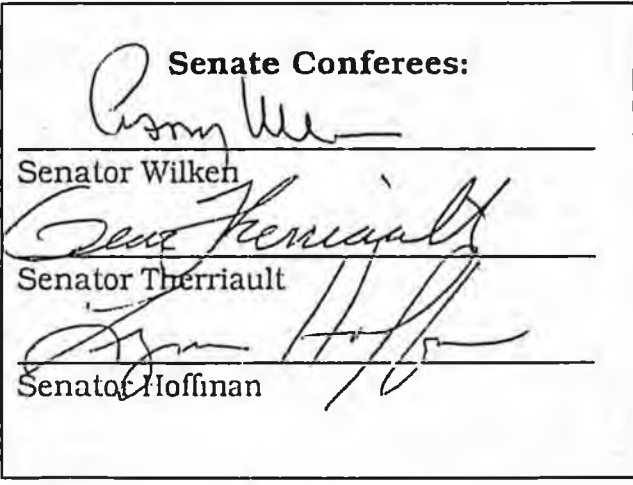 Senate Conferees:
Senator Wilken
Gene Therriault
Senator Therriault
Lyman Hoffman
Senator Hoffman